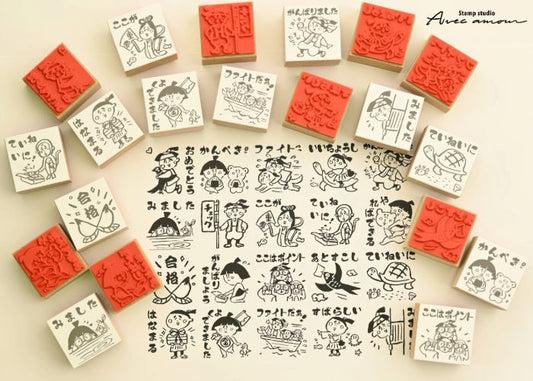 Stamp studio
Avec amour
ここが
がんばりました
よくできました
ファイトだぁ!
みました
はなまる
ていねいに!
ていねいに
合格
かんぺき!
みました
ここはポイント
おめでとう
かんぺき!
いいちょうし
みました
チェック
ここが
ていねいに!
やればできる
合格
がんばりましょう
ここはポイント
あとすこし
ていねいに
はなまる
よくできました
ファイトだぁ!
すばらしい